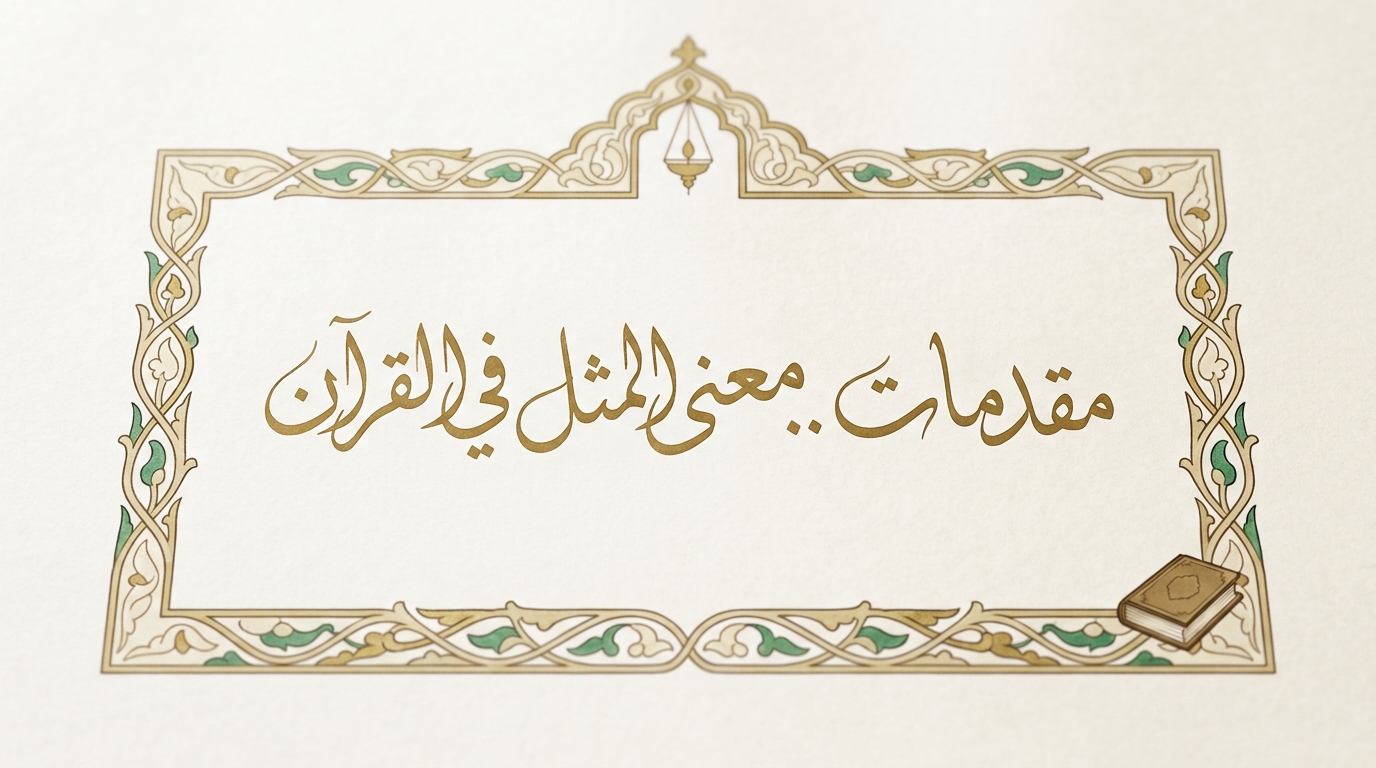 مقدمات .. معنى المثل في القرآن